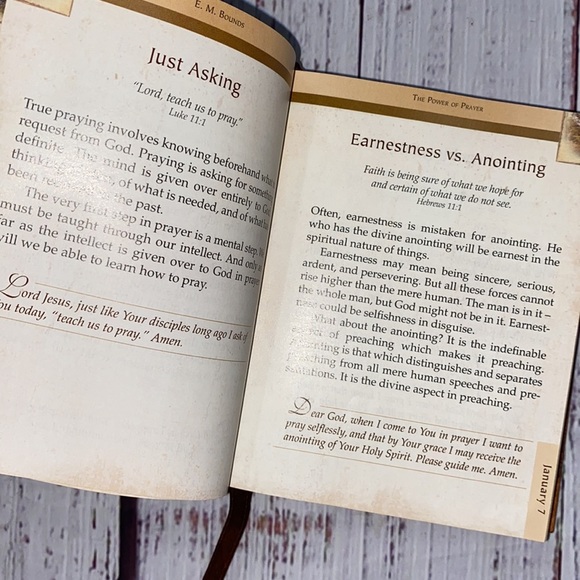 E. M. BOUNDS
Just Asking
"Lord, teach us to pray."
Luke 11:1
True praying involves knowing beforehand
request from God. Praying is asking for
definite. The mind is given over entirely to
of what is needed, and of what
the past.
The very first step in prayer is a mental step.
must be taught through our intellect. And only
far as the intellect is given over to God in prayer
will we be able to learn how to pray.
Lord Jesus, just like Your disciples long ago I ask
You today, "teach us to pray." Amen.
THE POWER OF PRAYER
Earnestness vs. Anointing
Faith is being sure of what we hope for
and certain of what we do not see.
Hebrews 11:1
Often, earnestness is mistaken for anointing. He
who has the divine anointing will be earnest in the
spiritual nature of things.
Earnestness may mean being sincere, serious,
ardent, and persevering. But all these forces cannot
rise higher than the mere human. The man is in it –
the whole man, but God might not be in it. Earnest-
ness could be selfishness in disguise.
What about the anointing? It is the indefinable
of preaching which makes it preaching.
Anointing is that which distinguishes and separates
preaching from all mere human speeches and pre-
sentations. It is the divine aspect in preaching.
Dear God, when I come to You in prayer I want to
pray selflessly, and that by Your grace I may receive the
anointing of Your Holy Spirit. Please guide me. Amen.
January 7